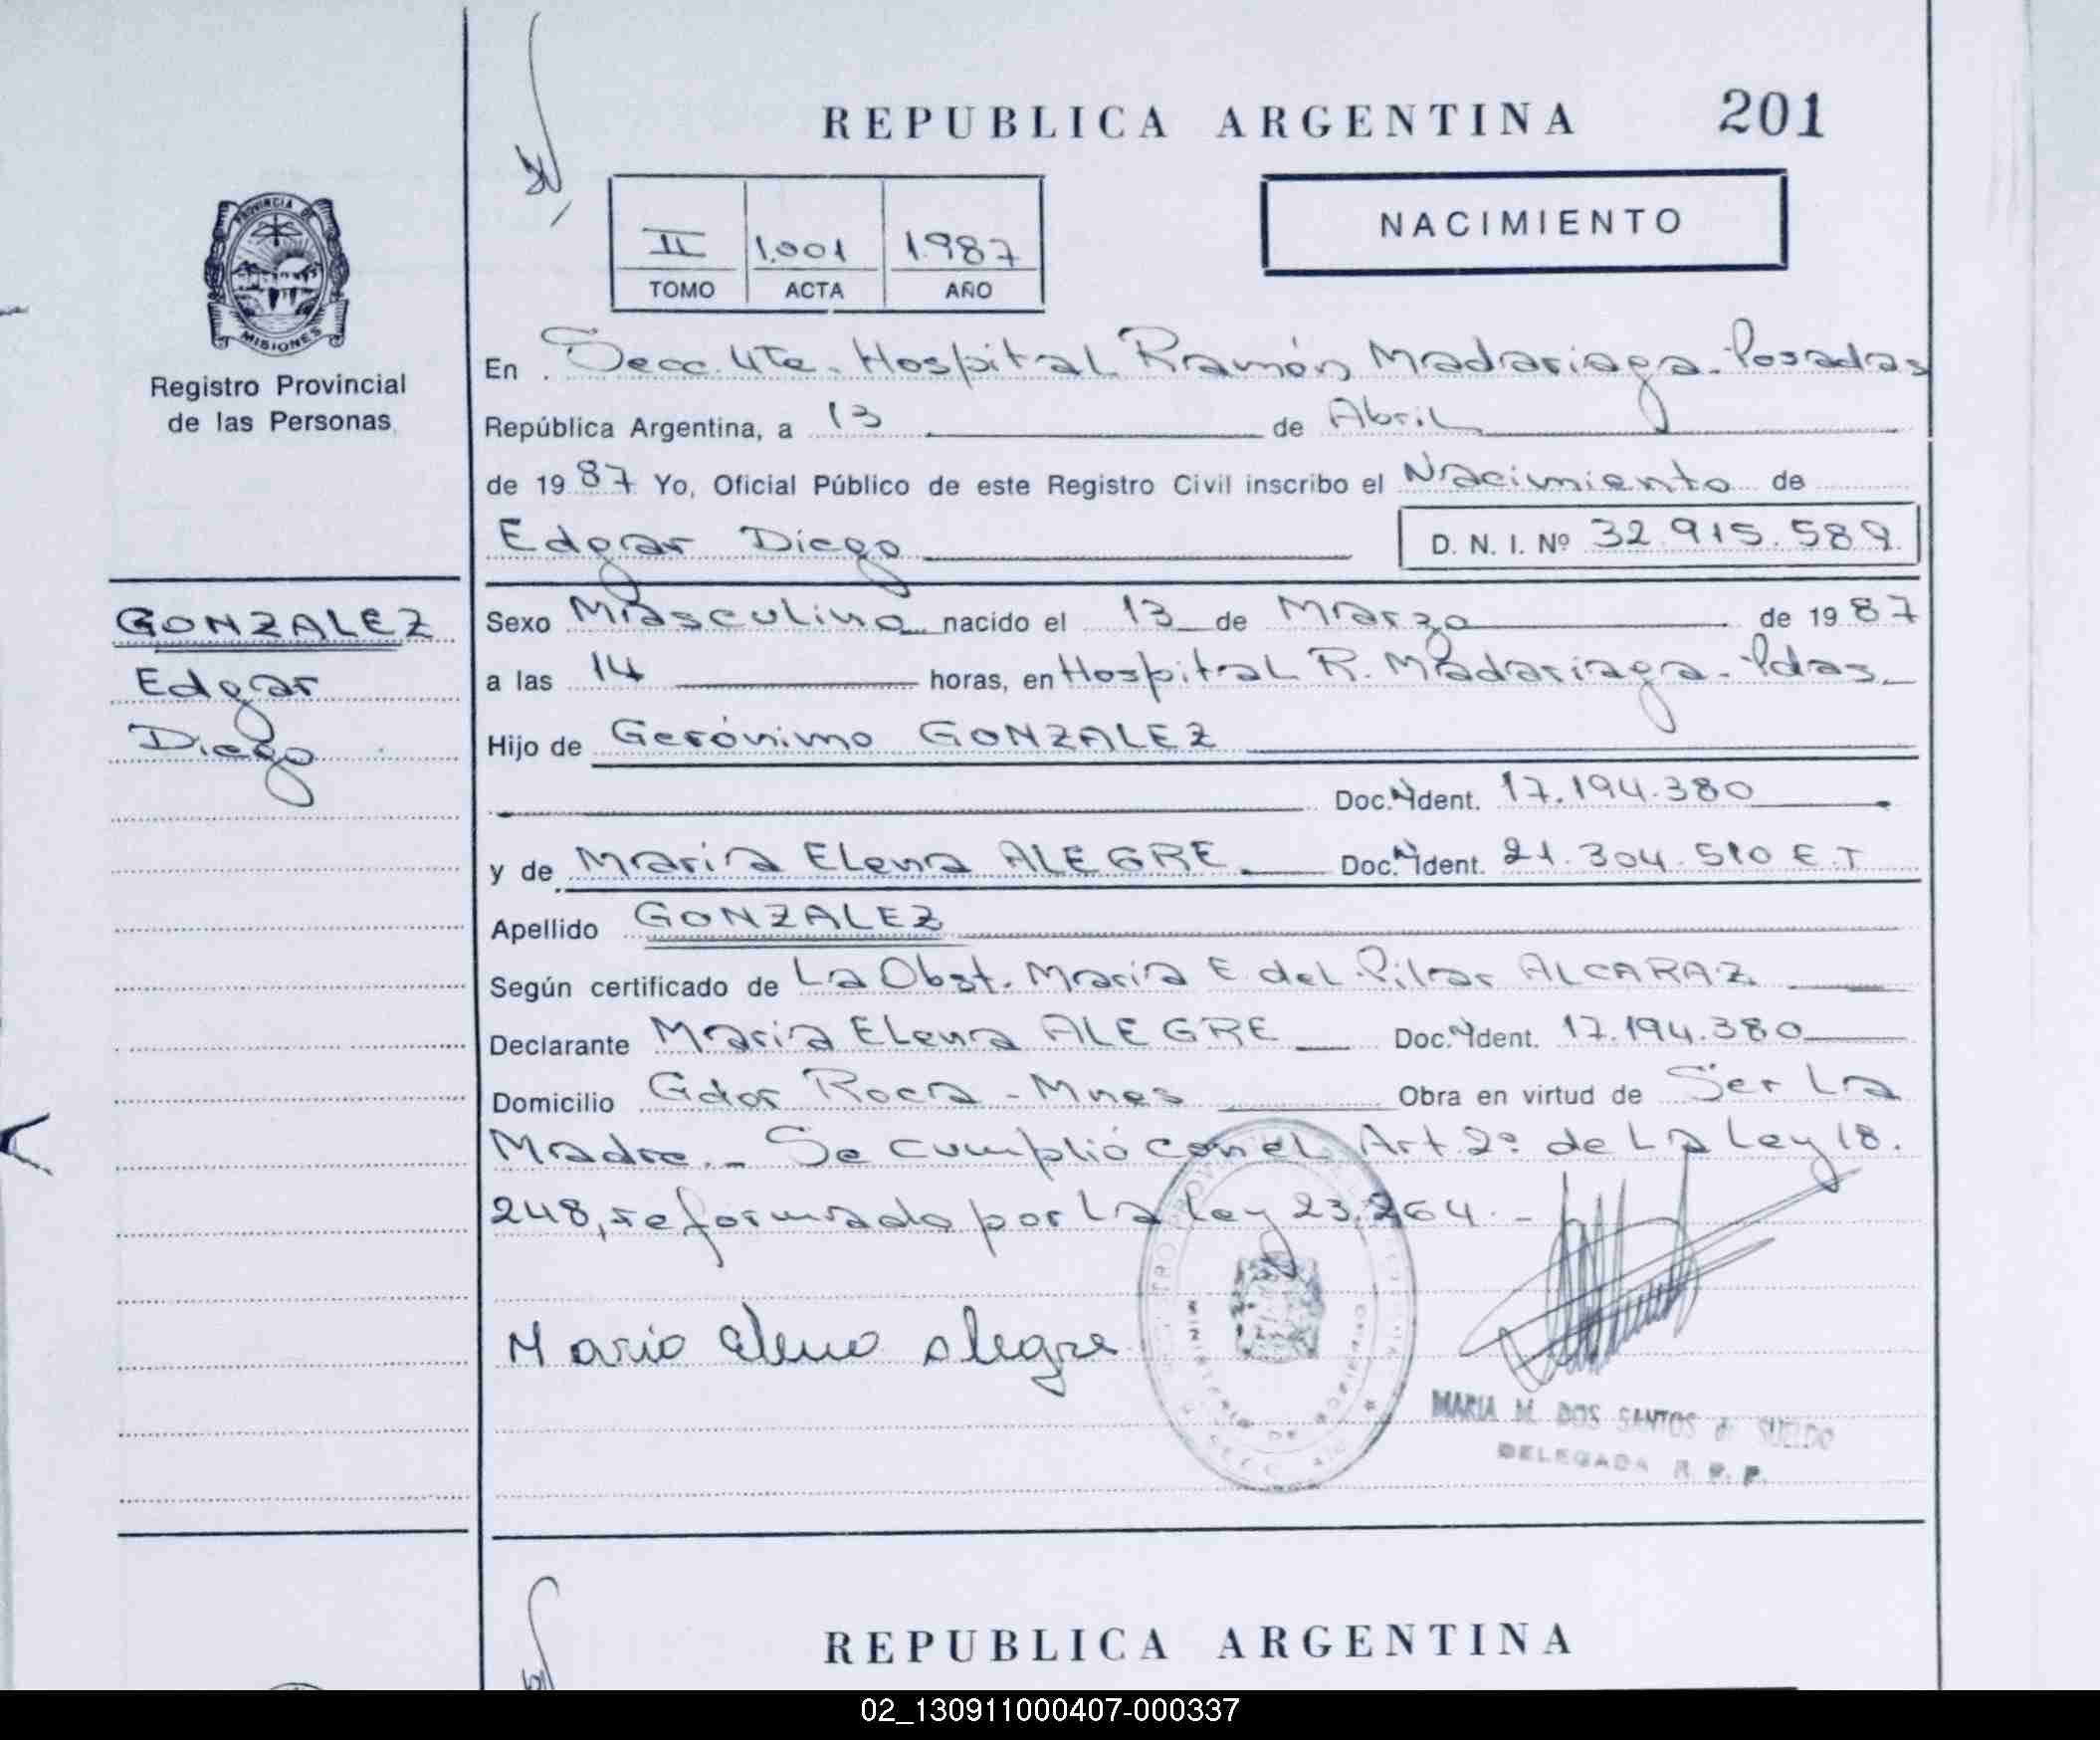 REPUBLICA ARGENTINA 201
II 1.001 1987
TOMO ACTA AÑO
NACIMIENTO
PROVINCIA DE
MISIONES
Registro Provincial
de las Personas
En Secc. 4ta. Hospital Ramón Madariaga. Posadas
República Argentina, a 13 de Abril
de 1987 Yo, Oficial Público de este Registro Civil inscribo el Nacimiento de
Edgar Diego D. N. I. Nº 32.915.589
GONZALEZ
Edgar
Diego
Sexo Masculino nacido el 13 de Marzo de 1987
a las 14 horas, en Hospital R. Madariaga. Pdas.
Hijo de Gerónimo GONZALEZ
Doc. N Ident. 17.194.380
y de María Elena ALEGRE Doc. N Ident. 21.304.510 E.T
Apellido GONZALEZ
Según certificado de La Obst. María E del Pilar ALCARAZ
Declarante María Elena ALEGRE Doc. N Ident. 17.194.380
Domicilio Gdor Roca - Mnes Obra en virtud de Ser La
Madre. - Se cumplió con el Art. 2º de La Ley 18.
248, reformado por La Ley 23.264. -
Maria Elena Alegre
MINISTERIO DE GOBIERNO
MARIA M. DOS SANTOS de SUELDO
DELEGADA R. P. P.
REPUBLICA ARGENTINA
02_130911000407-000337